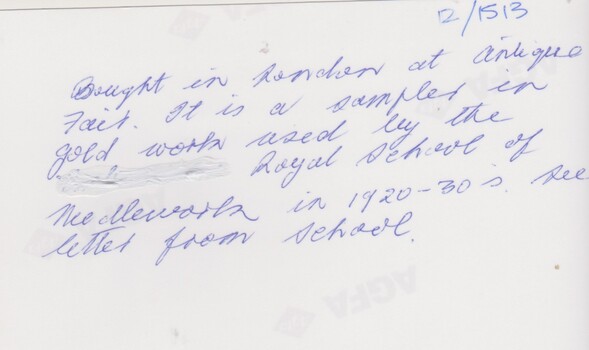 12/1513
Bought in London at Antique
Fair. It is a sampler in
gold work used by the
Royal School of
Needlework in 1920-30's. See
letter from School.
AGFA
AGFA
AGFA